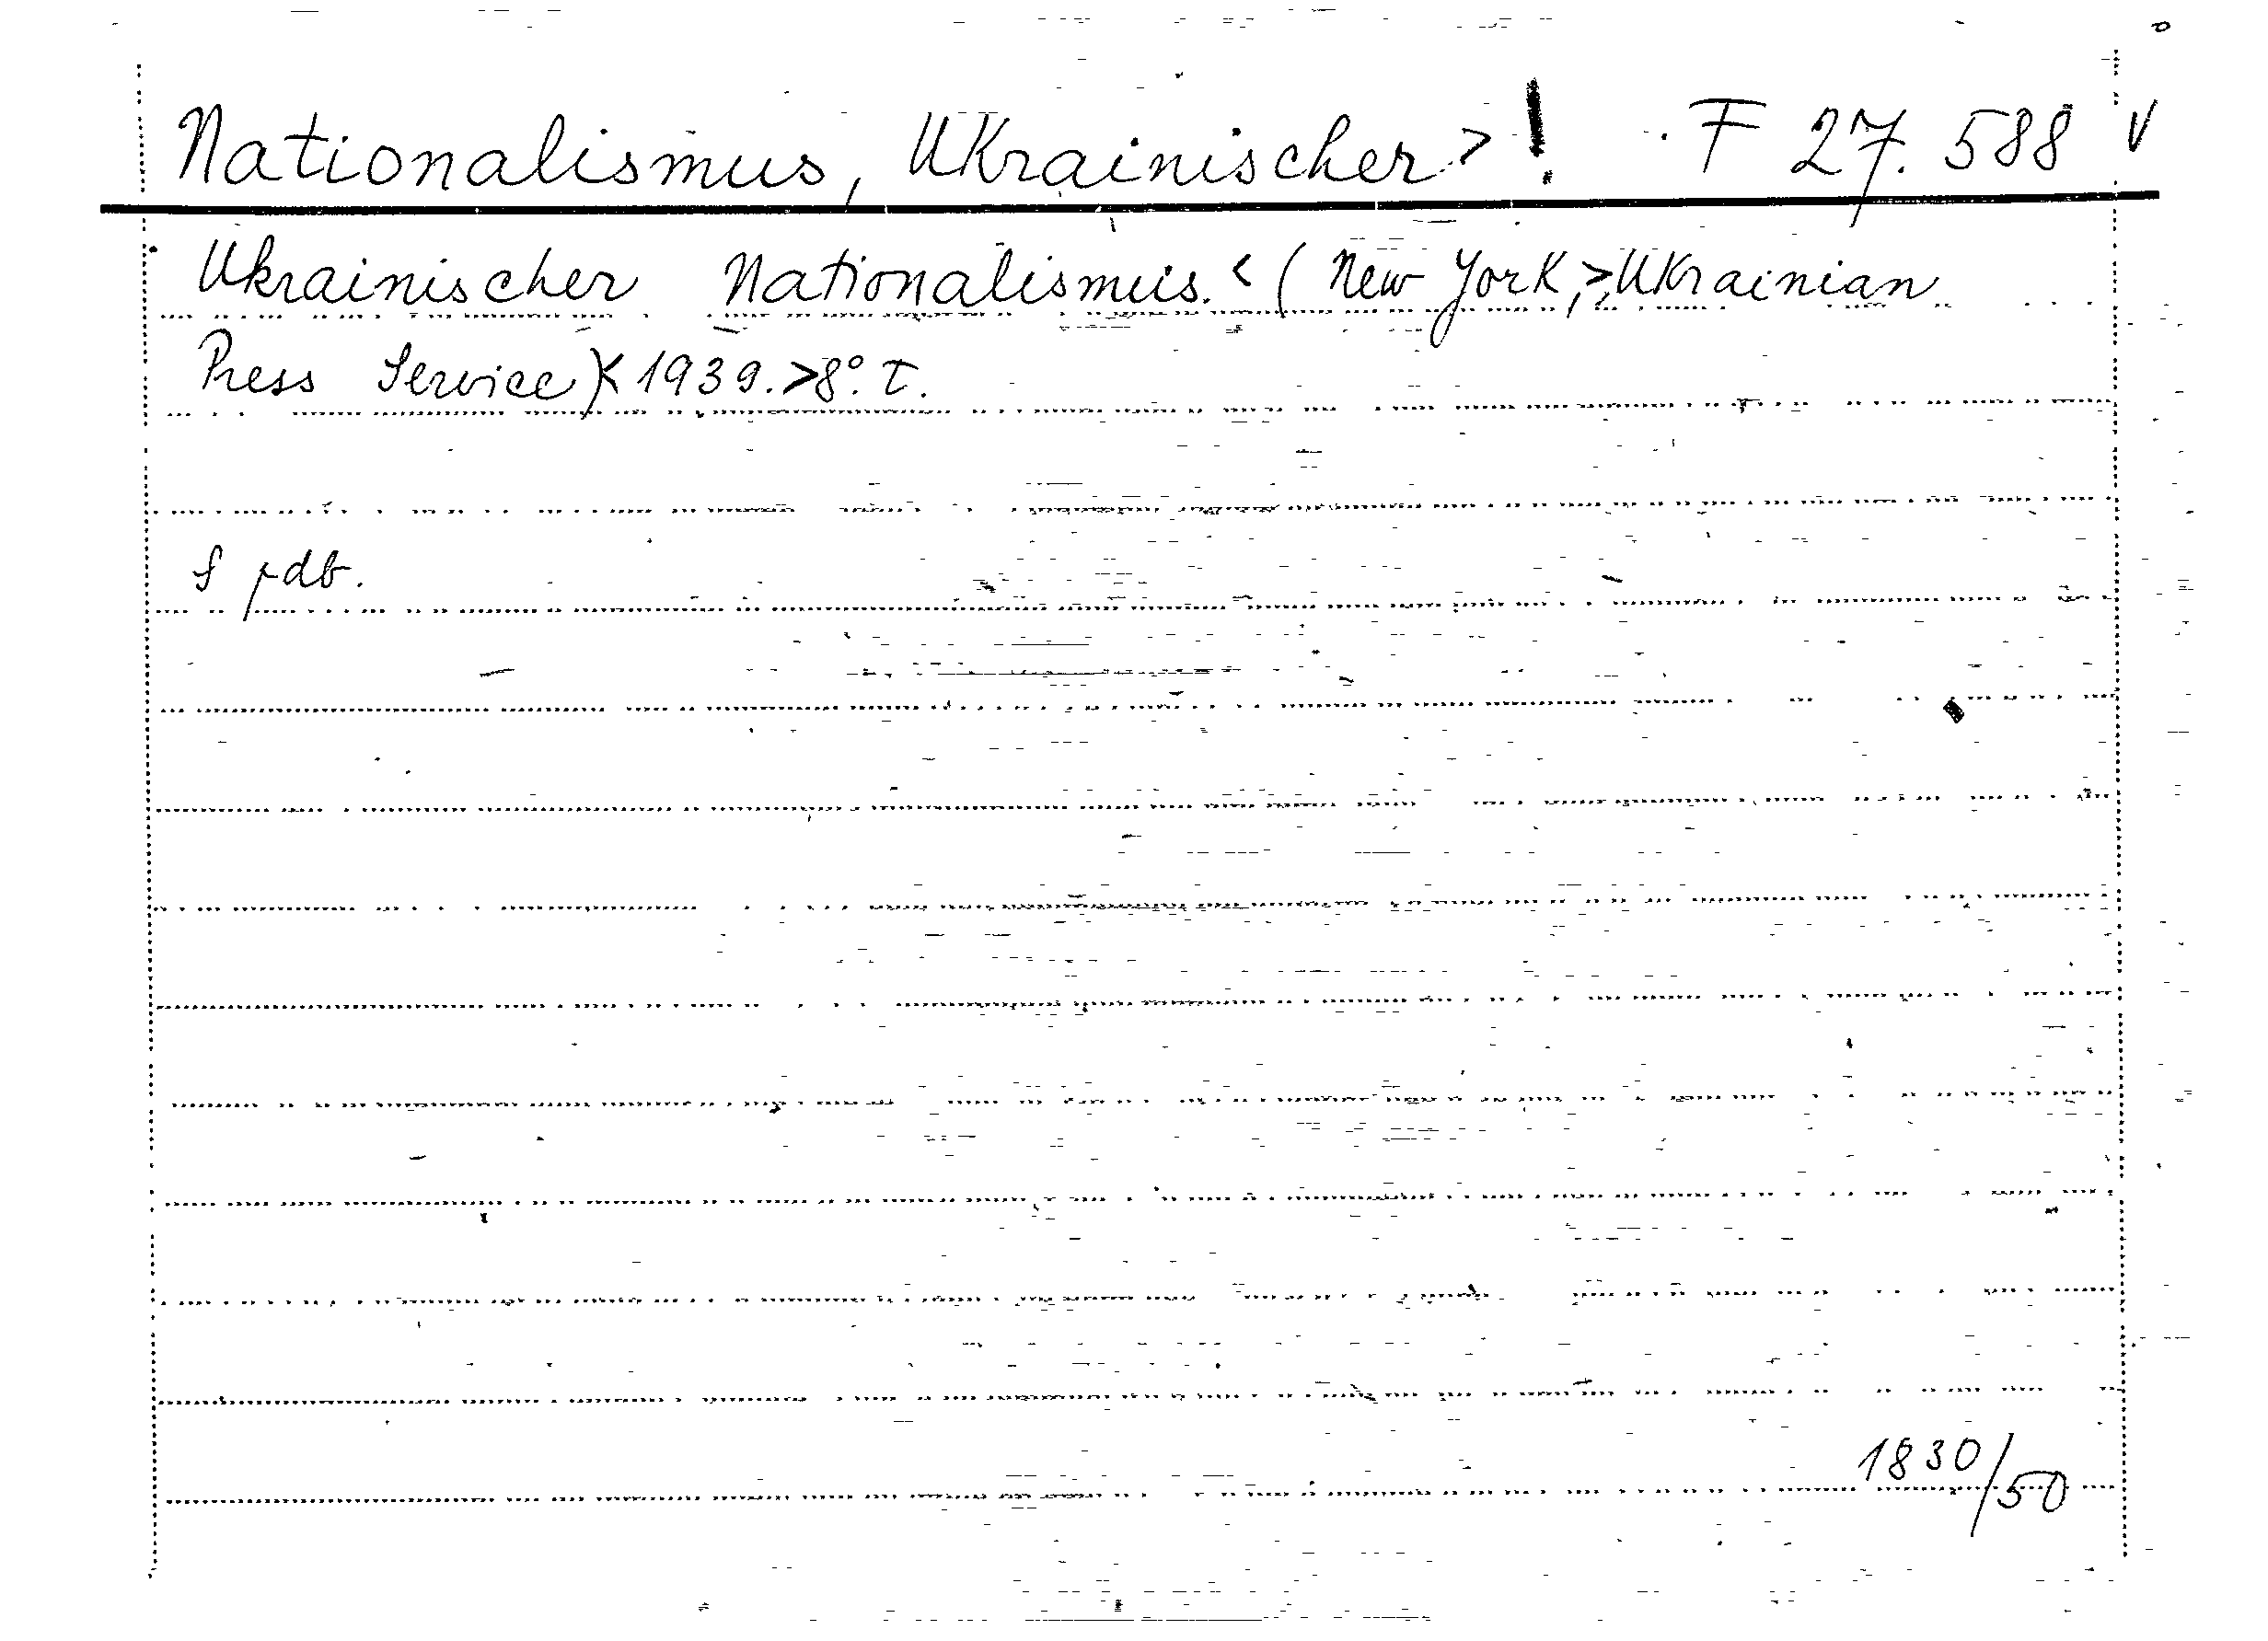 Nationalismus, Ukrainischer > ! F 27. 588 v
Ukrainischer Nationalismus. < (New York, > Ukrainian
Press Service) < 1939. > 8°. τ.
f pdb.
1830/50